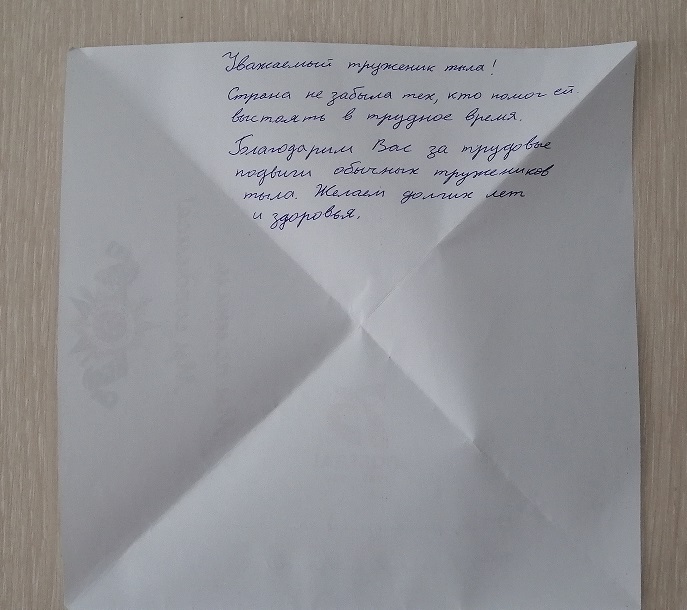 Уважаемый труженик тыла!
Страна не забыла тех, кто помог ей
выстоять в трудное время.
Благодарим Вас за трудовые
подвиги обычных тружеников
тыла. Желаем долгих лет
и здоровья.